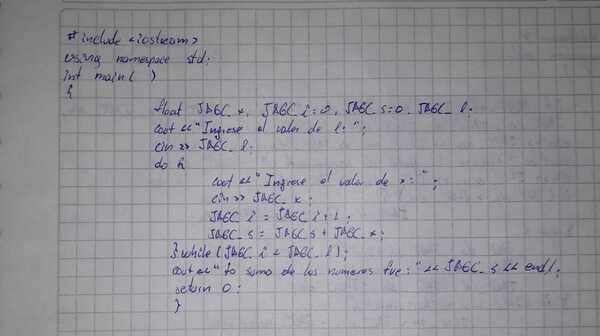 #include <iostream>
using namespace std;
int main( )
{
float JAEC_x, JAEC_i=0, JAEC_s=0, JAEC_l;
cout <<"Ingrese el valor de l: ";
cin >> JAEC_l;
do {
cout <<"Ingrese el valor de x= ";
cin >> JAEC_x;
JAEC_i = JAEC_i+1;
JAEC_s = JAEC_s + JAEC_x;
} while (JAEC_i < JAEC_l);
cout <<"la suma de los numeros fue: " << JAEC_s << endl;
return 0;
}